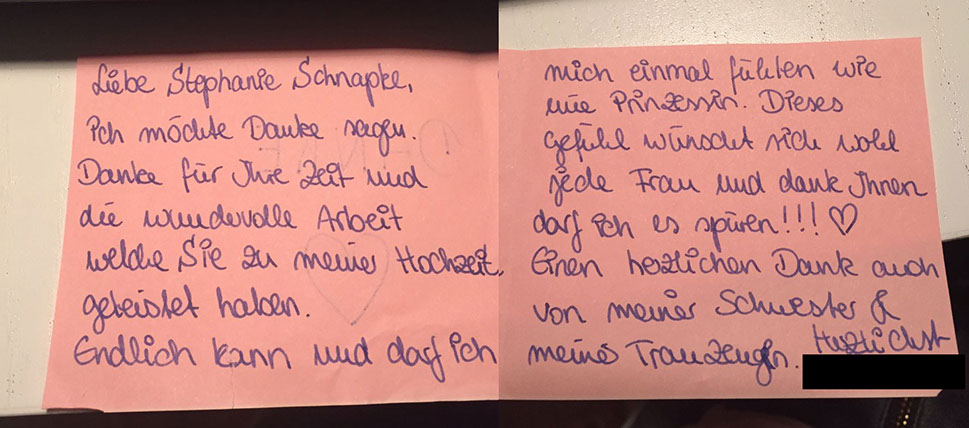 Liebe Stephanie Schnapke,
ich möchte Danke sagen.
Danke für Ihre Zeit und
die wundervolle Arbeit
welche Sie zu meiner Hochzeit
geleistet haben.
Endlich kann und darf ich
mich einmal fühlen wie
eine Prinzessin. Dieses
Gefühl wünscht sich wohl
jede Frau und dank Ihnen
darf ich es spüren!!! ♡
Einen herzlichen Dank auch
von meiner Schwester &
meiner Trauzeugin.
Herzlichst